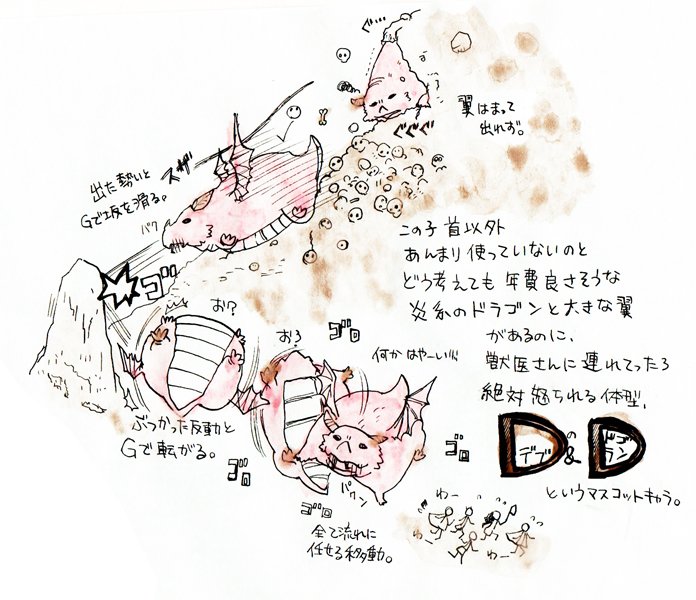 ぐ…
翼はまって
出れず。
ぐぐぐ
出た勢いと
Gで坂を滑る。
スザ
パワ
ゴ
お?
お?
ゴロ
何かはやーい!!!
この子首以外
あんまり使っていないのと
どう考えても年費良さそうな
炎系のドラゴンと大きな翼
があるのに、
獣医さんに連れてったら
絶対怒られる体型、
Dデブの&Dドラゴン
というマスコットキャラ。
ぶつかった反動と
Gで転がる。
ゴロ
ゴロ
パワン
ゴロ
全て流れに
任せる移動。
わー
わー
わー